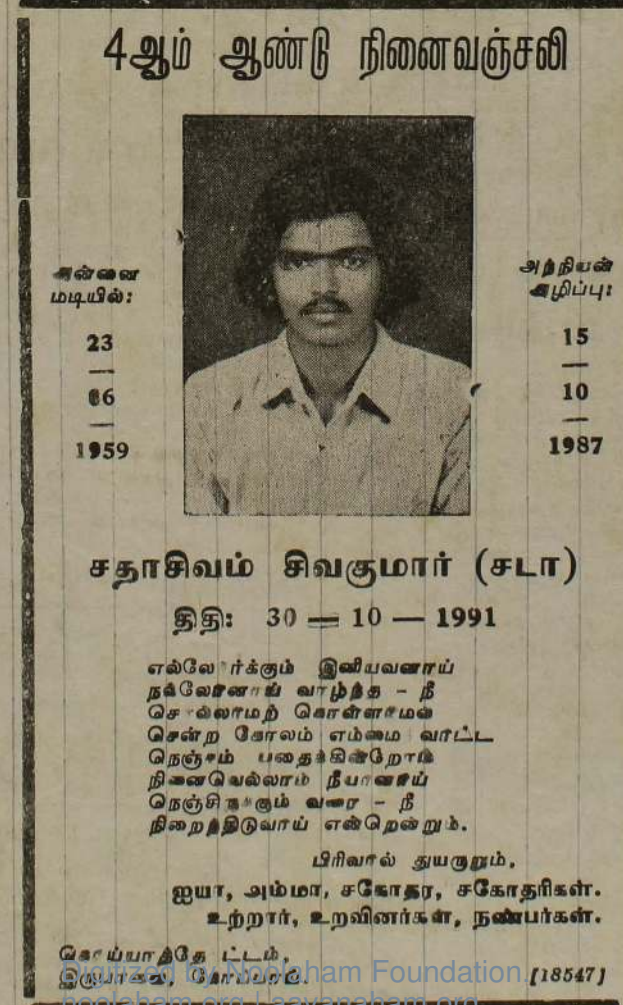 4ஆம் ஆண்டு நினைவஞ்சலி
அன்னை
மடியில்:
23
—
06
—
1959
அந்நியன்
அழிப்பு:
15
—
10
—
1987
சதாசிவம் சிவகுமார் (சடா)
திதி: 30 — 10 — 1991
எல்லோர்க்கும் இனியவனாய்
நல்லோனாய் வாழ்ந்த – நீ
சொல்லாமற் கொள்ளாமல்
சென்ற கோலம் எம்மை வாட்ட
நெஞ்சம் பதைக்கின்றோம்
நினைவெல்லாம் நீயானாய்
நெஞ்சிருக்கும் வரை – நீ
நிறைந்திடுவாய் என்றென்றும்.
பிரிவால் துயருறும்,
ஐயா, அம்மா, சகோதர, சகோதரிகள்.
உற்றார், உறவினர்கள், நண்பர்கள்.
கொய்யாத்தோட்டம்,
இருபாலை, கோப்பாய்.
[18547]
Digitized by Noolaham Foundation.
noolaham.org | aavanaham.org